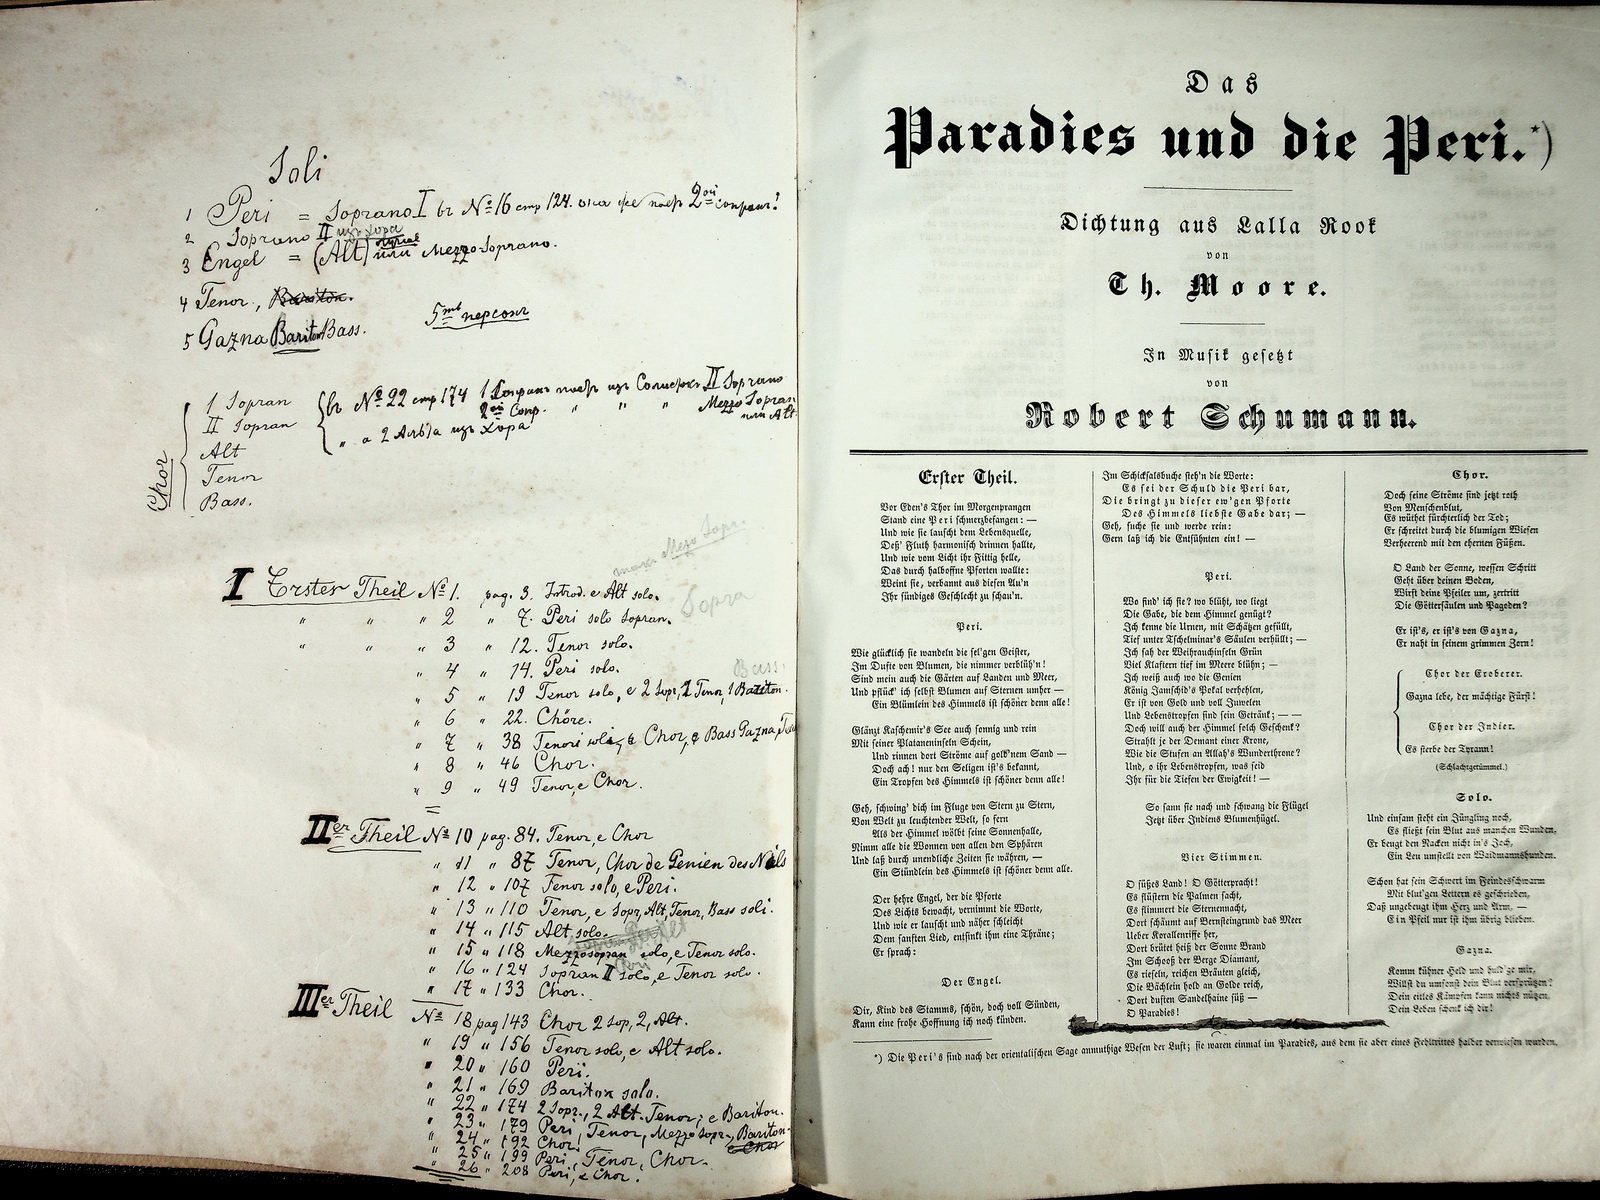 Soli
1 Peri = Soprano I въ № 16 стр 124. она же поетъ 2ой сопрані!
2 Soprano II изъ хора
3 Engel = (Alt) лучше или Mezzo-Soprano.
4 Tenor, Bariton.
5 Gazna Bariton Bass.
5ть персонъ
Chor
1 Sopran
II Sopran
Alt
Tenor
Bass.
въ № 22 стр 174 1 Сопранъ поетъ изъ Солистокъ II Soprano
2ой Сопр. " " " Mezzo Sopran
или Alt.
" а 2 Альта изъ хора
Mezo Sopr.
I Erster Theil № 1. pag. 3. Introd. e Alt solo.
Sopra
" " " 2 " 7. Peri solo Sopran.
" " " 3 " 12. Tenor solo.
" 4 " 14. Peri solo.
Bass.
" 5 " 19 Tenor solo, e 2 Sopr, 1 Tenor, 1 Bariton.
" 6 " 22. Chöre.
" 7 " 38 Tenor solo, e Chor, e Bass Gazna,
" 8 " 46 Chor.
" 9 " 49 Tenor, e Chor.
IIer Theil № 10 pag. 84. Tenor, e Chor
" 11 " 87 Tenor, Chor de Genien des Nils
" 12 " 107 Tenor solo, e Peri.
" 13 " 110 Tenor, e Sopr, Alt, Tenor, Bass soli.
" 14 " 115 Alt solo.
" 15 " 118 Mezzosopran solo, e Tenor solo.
" 16 " 124 Sopran II solo, e Tenor solo.
" 17 " 133 Chor.
IIIer Theil № 18 pag 143 Chor 2 Sop, 2, Alt.
" 19 " 156 Tenor solo, e Alt solo.
" 20 " 160 Peri.
" 21 " 169 Bariton solo.
" 22 " 174 2 Sopr., 2 Alt. Tenor, e Bariton.
" 23 " 179 Peri, Tenor, Mezzo Sopr., Bariton
" 24 " 192 Chor! e Chor
" 25 " 199 Peri, Tenor, Chor.
" 26 " 208 Peri, e Chor.
Das
Paradies und die Peri.*)
Dichtung aus Lalla Rook
von
Th. Moore.
In Musik gesetzt
von
Robert Schumann.
Erster Theil.
Vor Eden's Thor im Morgenprangen
Stand eine Peri schmerzbefangen: —
Und wie sie lauscht dem Lebensquelle,
Deß' Fluth harmonisch drinnen hallte,
Und wie vom Licht ihr Fittig helle,
Das durch halboffne Pforten wallte:
Weint sie, verbannt aus diesen Au'n
Ihr sündiges Geschlecht zu schau'n.
Peri.
Wie glücklich sie wandeln die sel'gen Geister,
Im Dufte von Blumen, die nimmer verblüh'n!
Sind mein auch die Gärten auf Landen und Meer,
Und pflück' ich selbst Blumen auf Sternen umher —
Ein Blümlein des Himmels ist schöner denn alle!
Glänzt Kaschemir's See auch sonnig und rein
Mit seiner Plataneninseln Schein,
Und rinnen dort Ströme auf gold'nem Sand —
Doch ach! nur den Seligen ist's bekannt,
Ein Tropfen des Himmels ist schöner denn alle!
Geh, schwing' dich im Fluge von Stern zu Stern,
Von Welt zu leuchtender Welt, so fern
Als der Himmel wölbt seine Sonnenhalle,
Nimm alle die Wonnen von allen den Sphären
Und laß durch unendliche Zeiten sie währen, —
Ein Stündlein des Himmels ist schöner denn alle.
Der hehre Engel, der die Pforte
Des Lichts bewacht, vernimmt die Worte,
Und wie er lauscht und näher schleicht
Dem sanften Lied, entsinkt ihm eine Thräne;
Er sprach:
Der Engel.
Dir, Kind des Stamms, schön, doch voll Sünden,
Kann eine frohe Hoffnung ich noch künden.
Im Schicksalsbuche steh'n die Worte:
Es sei der Schuld die Peri bar,
Die bringt zu dieser ew'gen Pforte
Des Himmels liebste Gabe dar; —
Geh, suche sie und werde rein:
Gern laß ich die Entsühnten ein! —
Peri.
Wo find' ich sie? wo blüht, wo liegt
Die Gabe, die dem Himmel genügt?
Ich kenne die Urnen, mit Schätzen gefüllt,
Tief unter Tschelminar's Säulen verhüllt; —
Ich sah der Weihrauchinseln Grün
Viel Klaftern tief im Meere blühn; —
Ich weiß auch wo die Genien
König Jamschid's Pokal verhehlen,
Er ist von Gold und voll Juwelen
Und Lebenstropfen sind sein Getränk; — —
Doch will auch der Himmel solch Geschenk?
Strahlt je der Demant einer Krone,
Wie die Stufen an Allah's Wunderthrone?
Und, o ihr Lebenstropfen, was seid
Ihr für die Tiefen der Ewigkeit! —
So sann sie nach und schwang die Flügel
Jetzt über Indiens Blumenhügel.
Vier Stimmen.
O süßes Land! O Götterpracht!
Es flüstern die Palmen sacht,
Es flimmert die Sternennacht,
Dort schäumt auf Bernsteingrund das Meer
Ueber Korallenriffe her,
Dort brütet heiß der Sonne Brand
Im Schooß der Berge Diamant,
Es rieseln, reichen Bräuten gleich,
Die Bächlein hold an Golde reich,
Dort duften Sandelhaine süß —
O Paradies!
Chor.
Doch seine Ströme sind jetzt roth
Von Menschenblut,
Es wüthet fürchterlich der Tod;
Er schreitet durch die blumigen Wiesen
Verheerend mit den ehernen Füßen.
O Land der Sonne, wessen Schritt
Geht über deinen Boden,
Wirft deine Pfeiler um, zertritt
Die Göttersäulen und Pagoden?
Er ist's, er ist's von Gazna,
Er naht in seinem grimmen Zorn!
Chor der Eroberer.
Gazna lebe, der mächtige Fürst!
Chor der Indier.
Es sterbe der Tyrann!
(Schlachtgetümmel.)
Solo.
Und einsam steht ein Jüngling noch,
Es fließt sein Blut aus manchen Wunden,
Er beugt den Nacken nicht in's Joch,
Ein Leu umstellt von Waidmannshunden.
Schon hat sein Schwert im Feindesschwarm
Mit blut'gen Lettern es geschrieben,
Daß ungebeugt ihm Herz und Arm, —
Ein Pfeil nur ist ihm übrig blieben.
Gazna.
Komm kühner Held und huld'ge mir,
Willst du umsonst dein Blut versprützen?
Dein eitles Kämpfen kann nichts nützen,
Dein Leben schenk ich dir!
*) Die Peri's sind nach der orientalischen Sage anmuthige Wesen der Luft; sie waren einmal im Paradies, aus dem sie aber eines Fehltrittes halber verwiesen wurden.